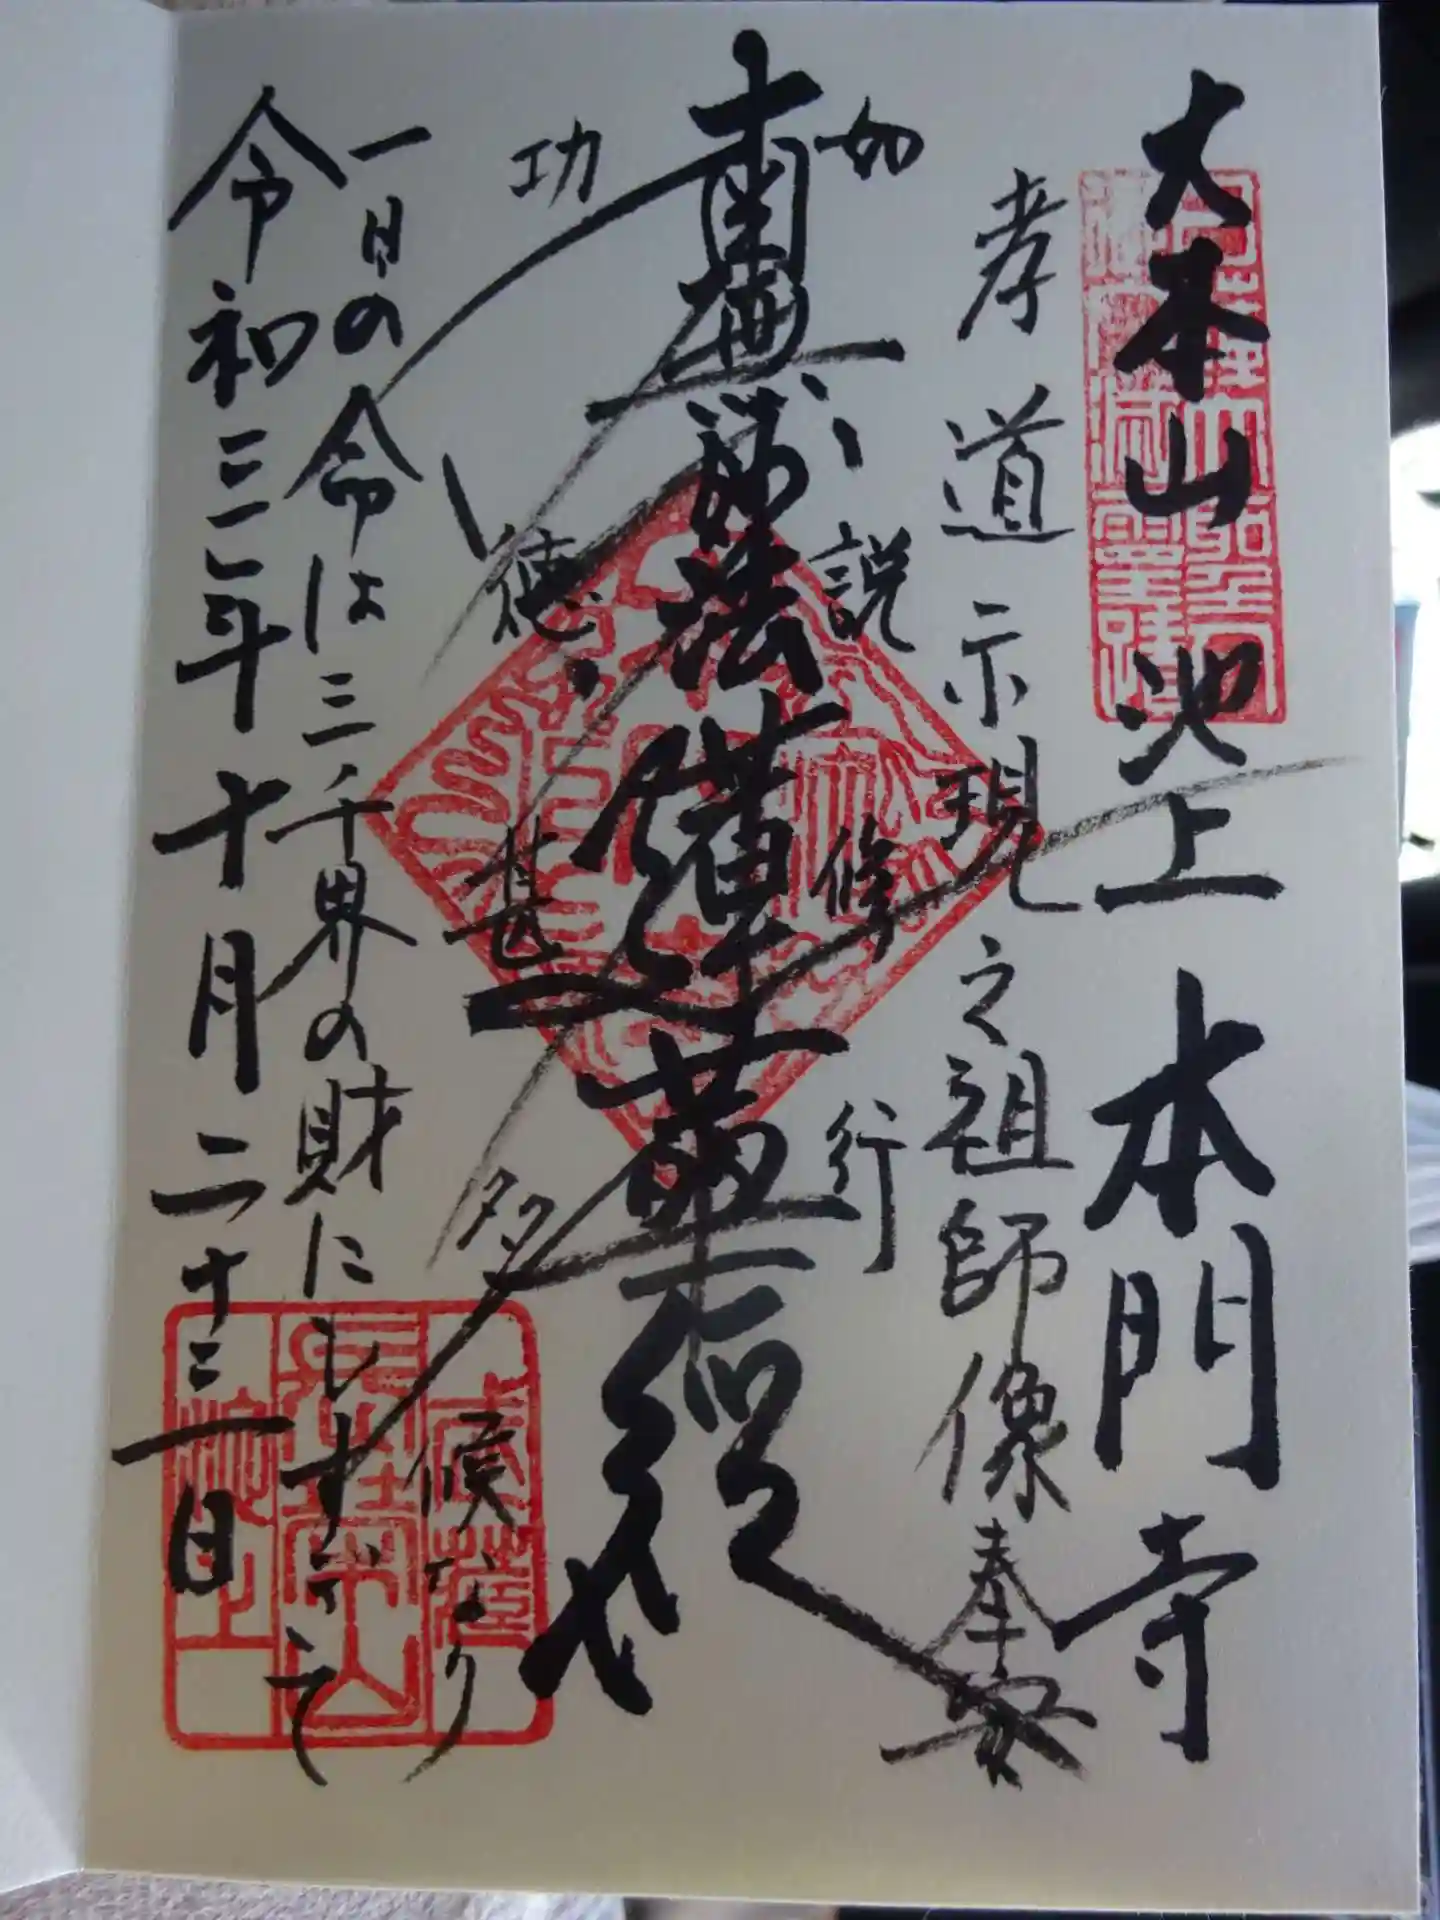 大本山 池上 本門寺
孝道示現之祖師像奉安
如説修行
南無妙法蓮華経
功徳甚多
一日の命は三千界の財にもすぎて
候なり
令和三年十月二十三日